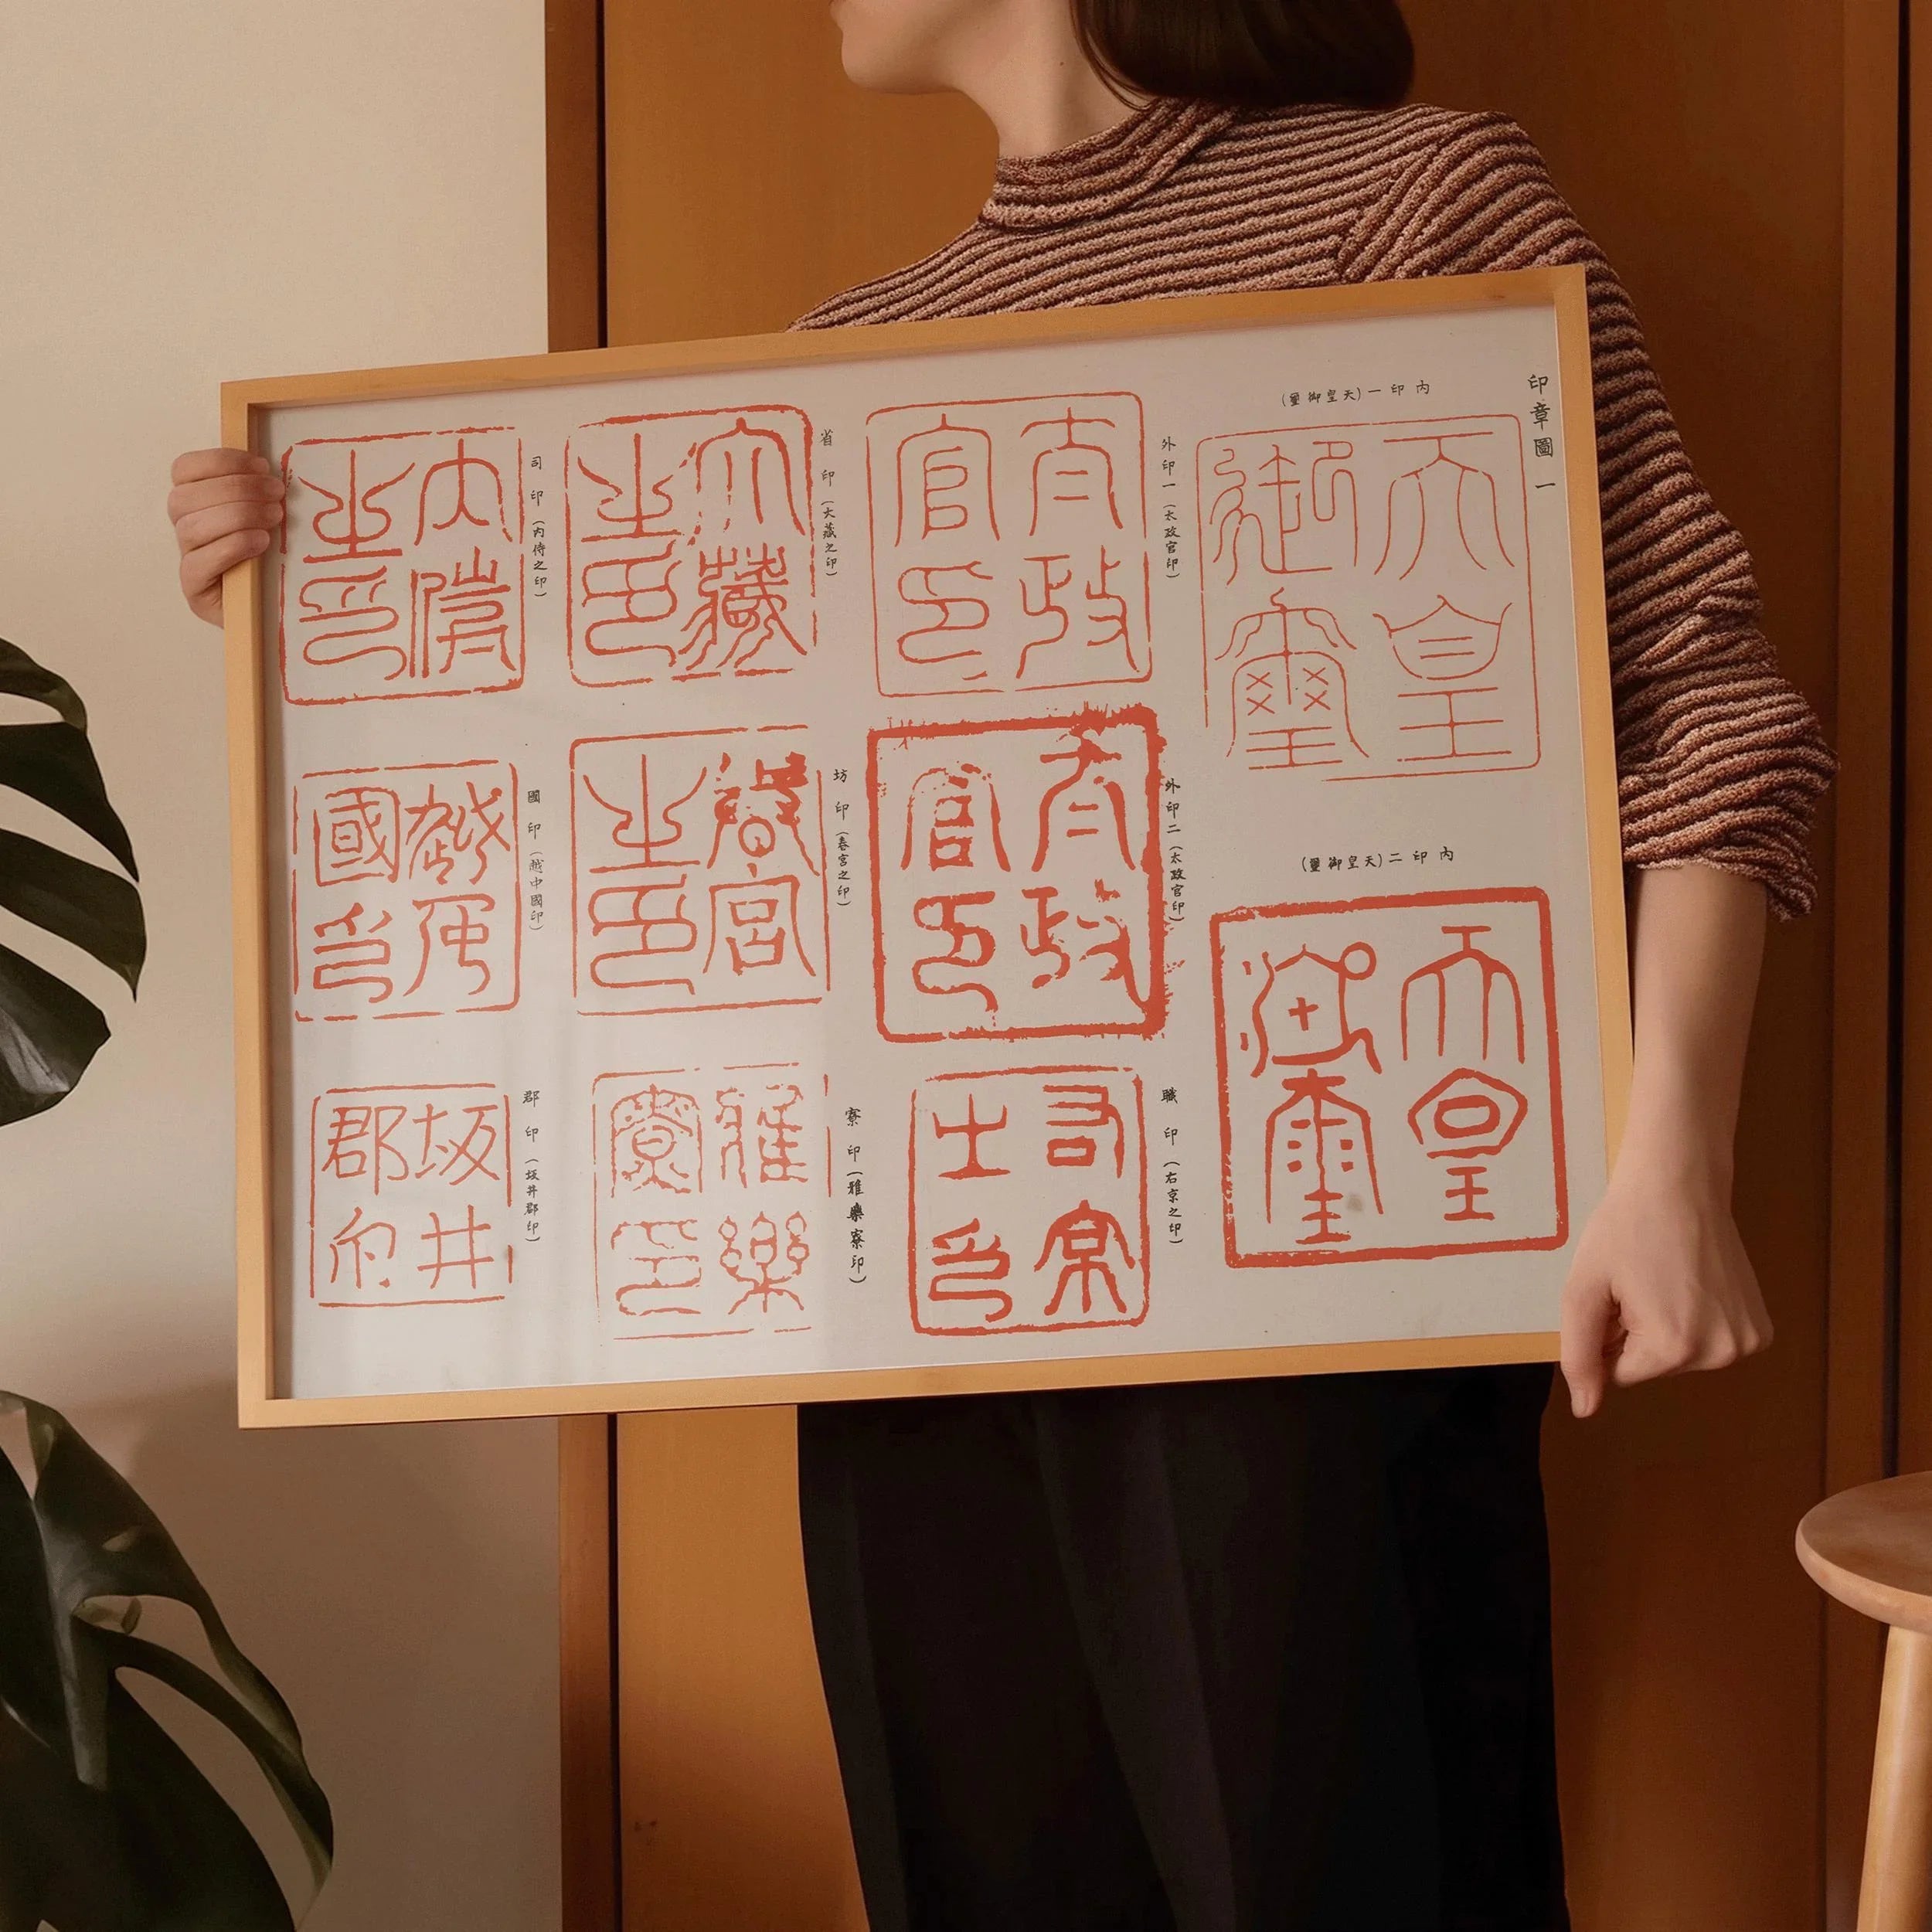 印章圖一
內印一(天皇御璽)
天皇
御璽
內印二(天皇御璽)
天皇
御璽
外印一(太政官印)
太政
官印
外印二(太政官印)
太政
官印
職印(右京之印)
右京
之印
省印(大藏之印)
大藏
之印
坊印(春宮之印)
春宮
之印
寮印(雅樂寮印)
雅樂
寮印
司印(內侍之印)
內侍
之印
國印(越中國印)
越中
國印
郡印(坂井郡印)
坂井
郡印